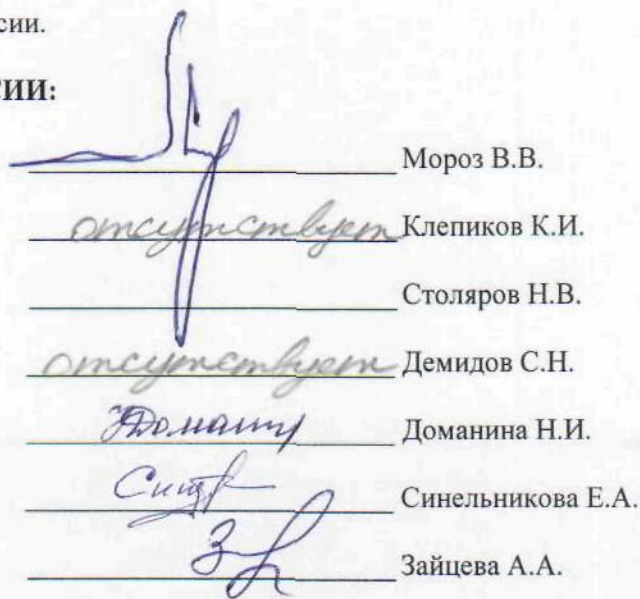 сии.
СИИ:
Мороз В.В.
отсутствует Клепиков К.И.
Столяров Н.В.
отсутствует Демидов С.Н.
Доманина Н.И.
Синельникова Е.А.
Зайцева А.А.